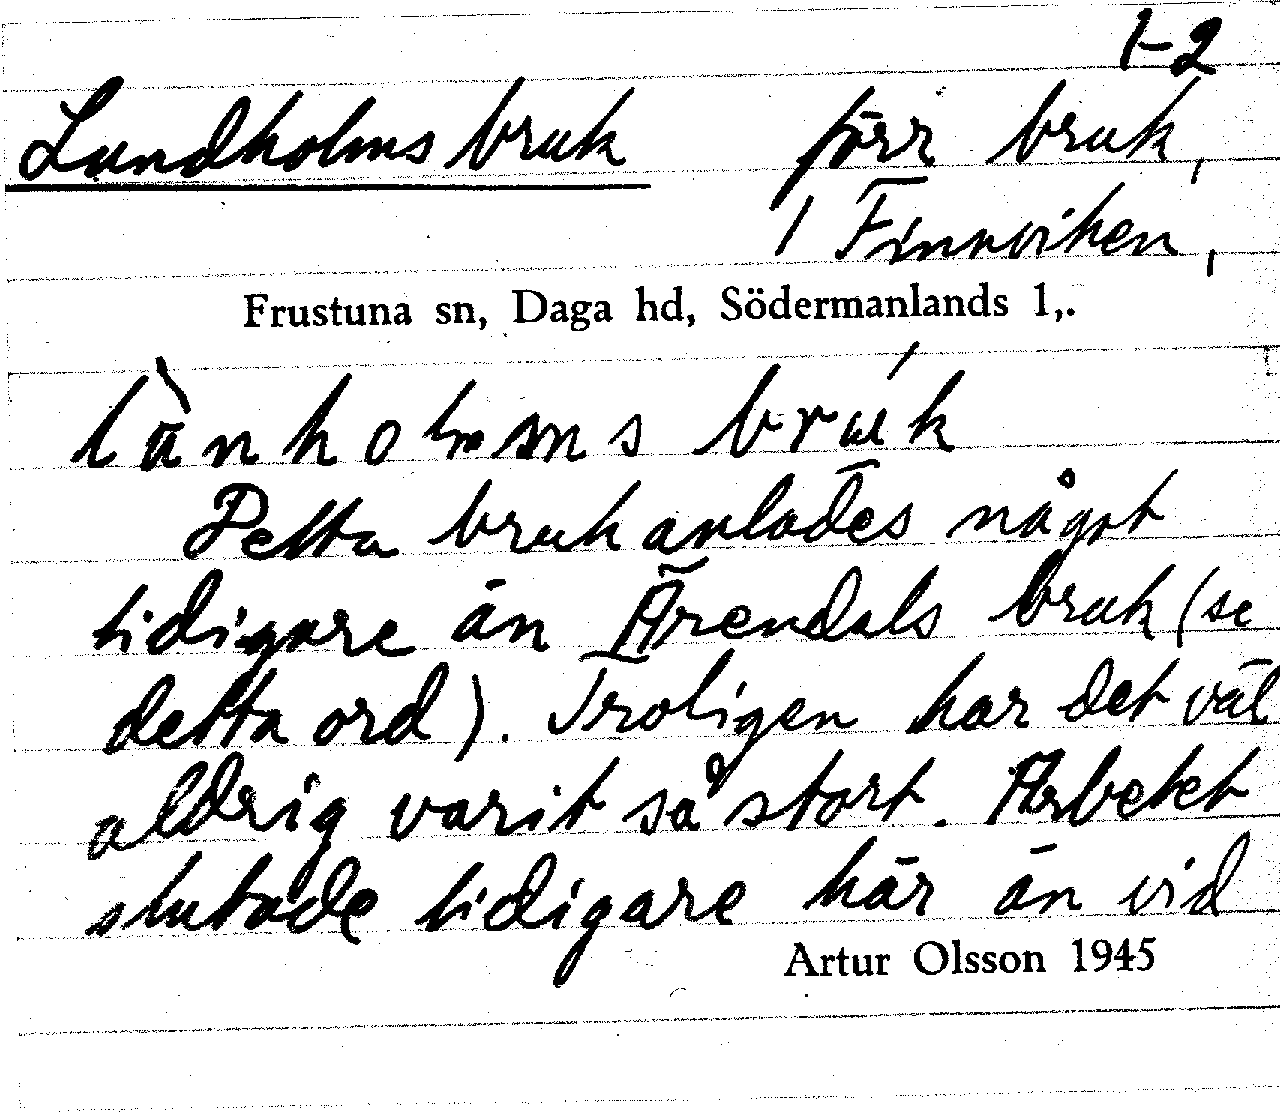 1-2
Lundholms bruk förr bruk,
/ Finnviken,
Frustuna sn, Daga hd, Södermanlands l,.
bruk
Detta bruk anlades något
tidigare än Ärendals bruk (se
detta ord). Troligen har det väl
aldrig varit så stort. Arbetet
slutade tidigare här än vid
Artur Olsson 1945